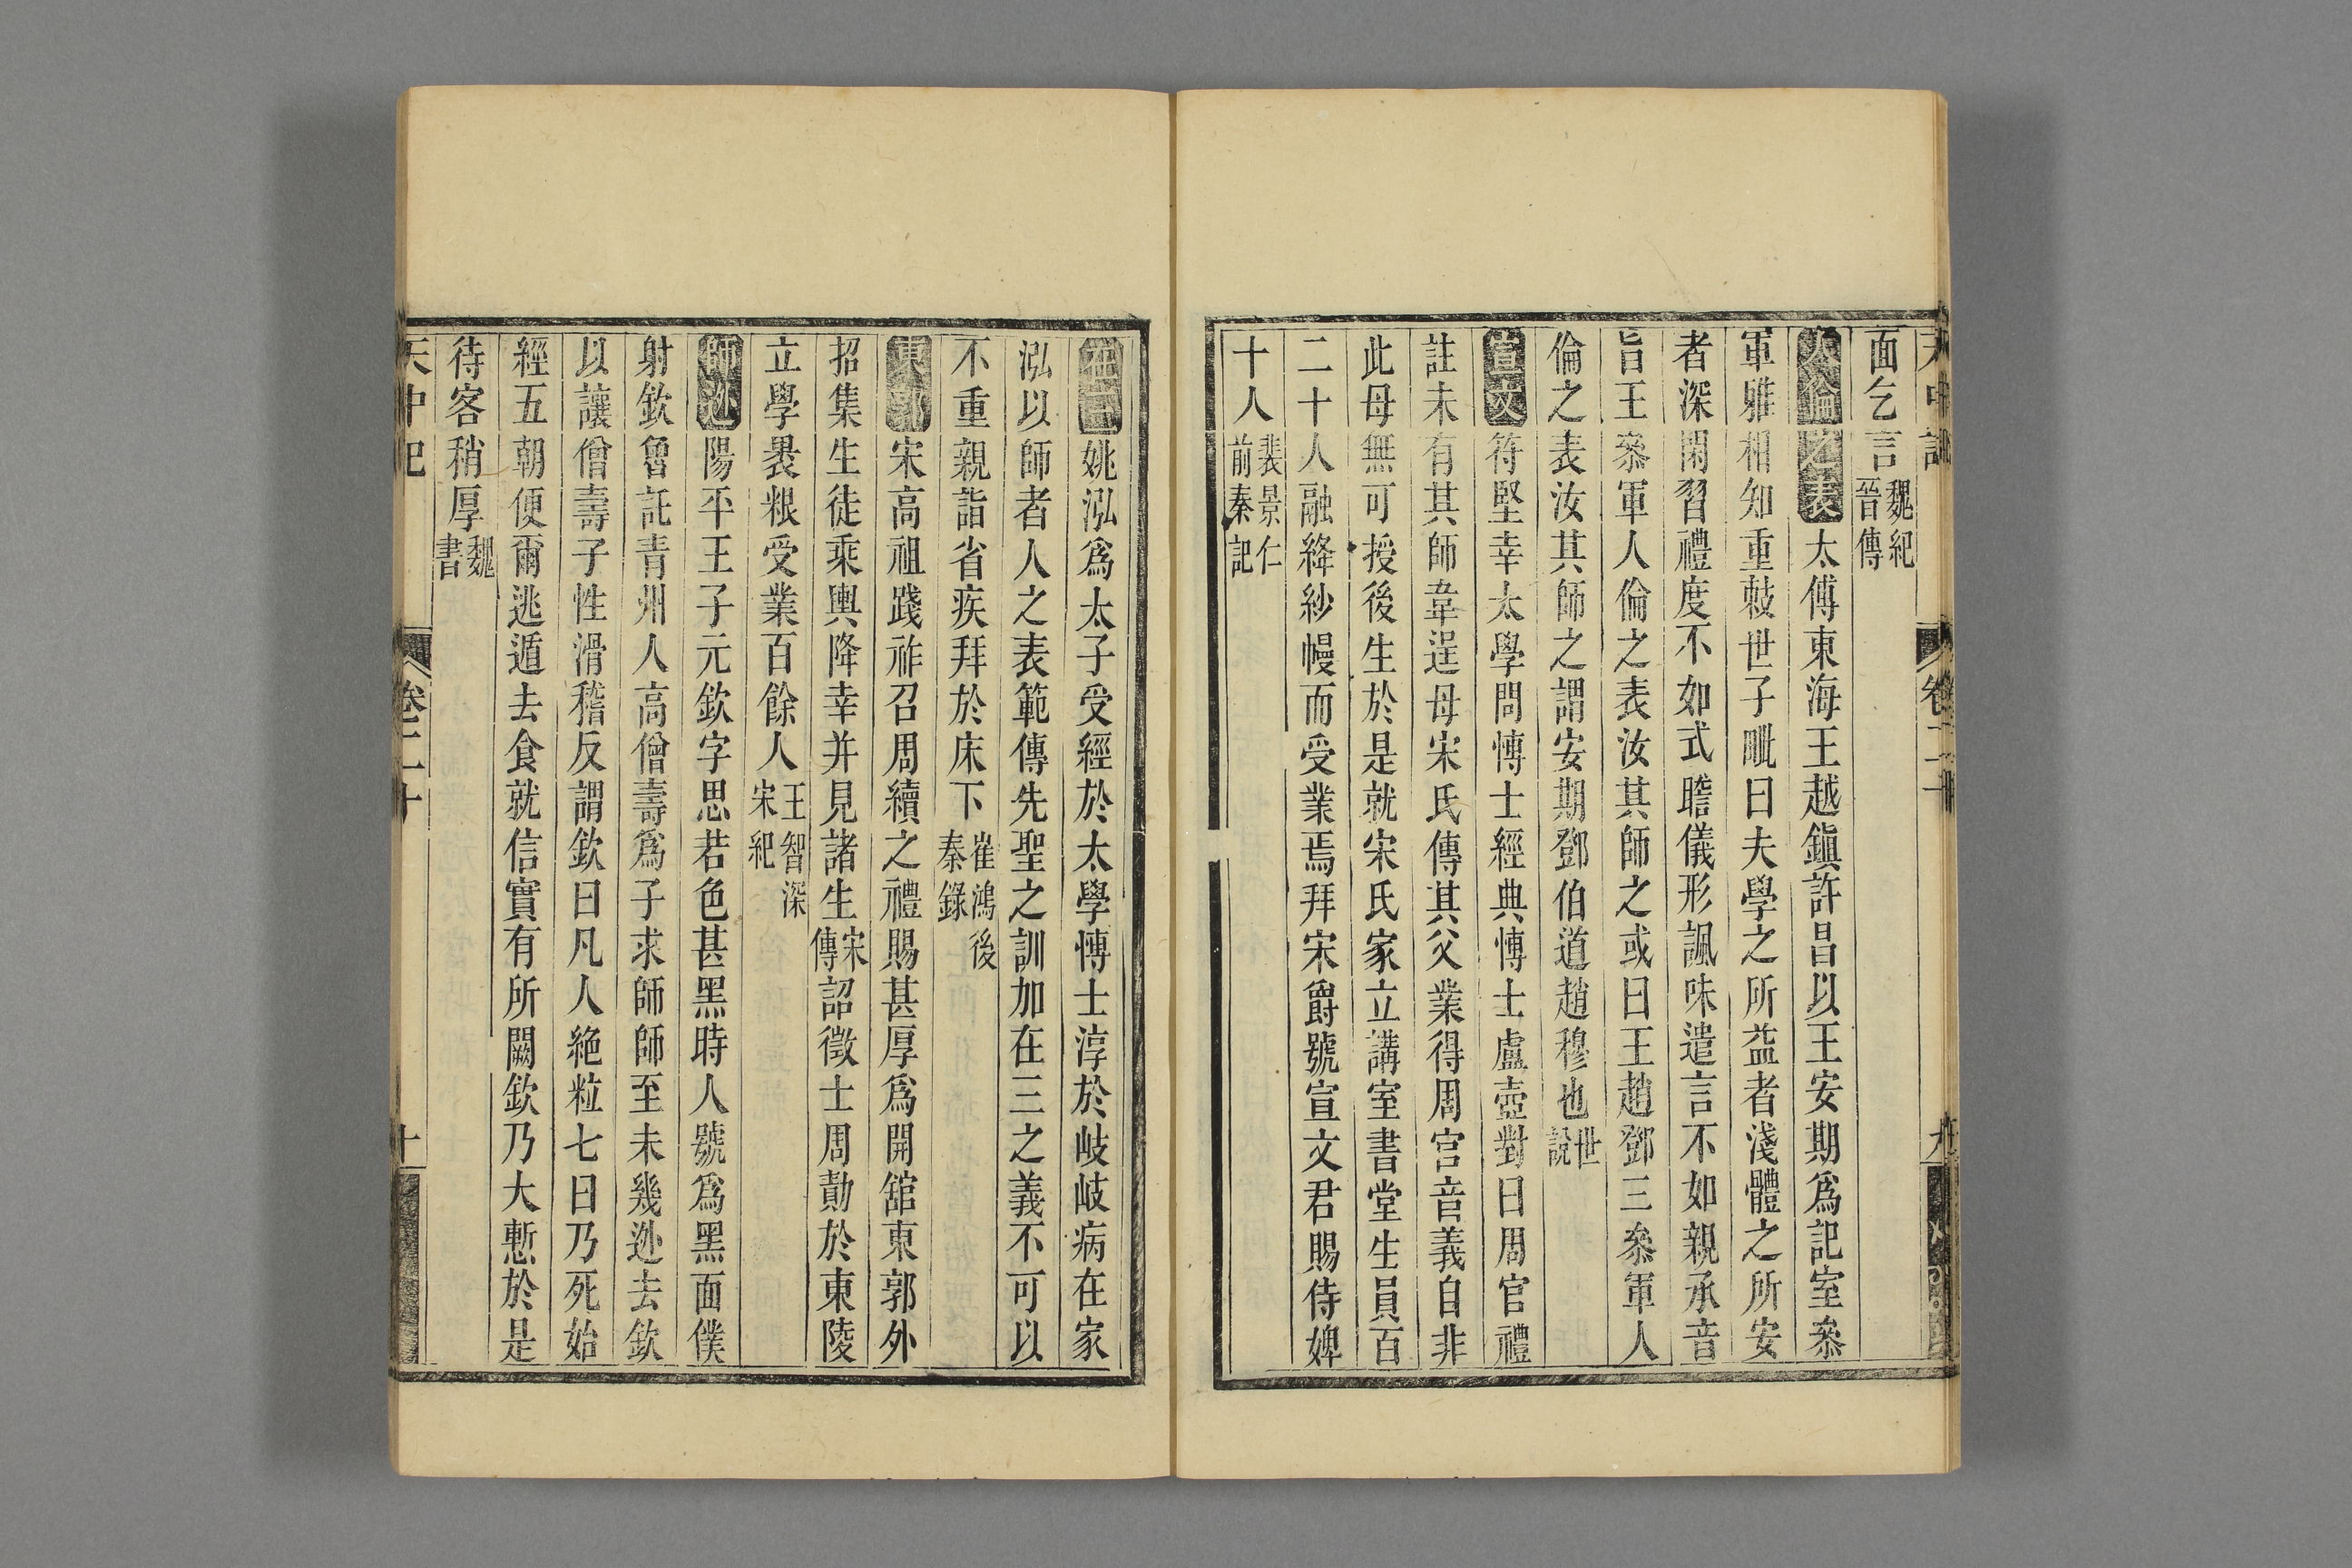 天中記 卷二十 九
面乞言魏紀晉傳
人倫之表太傅東海王越鎭許昌以王安期爲記室叅
軍雅相知重敕世子毗曰夫學之所益者淺體之所安
者深閑習禮度不如式瞻儀形諷味遣言不如親承音
旨王叅軍人倫之表汝其師之或曰王趙鄧三叅軍人
倫之表汝其師之謂安期鄧伯道趙穆也世說
宣文符堅幸太學問愽士經典愽士盧壺對曰周官禮
註未有其師韋逞母宋氏傳其父業得周官音義自非
此母無可授後生於是就宋氏家立講室書堂生員百
二十人融絳紗幔而受業焉拜宋爵號宣文君賜侍婢
十人裴景仁前秦記
在三姚泓爲太子受經於太學愽士淳於岐岐病在家
泓以師者人之表範傳先聖之訓加在三之義不可以
不重親詣省疾拜於床下崔鴻後秦錄
東郭宋高祖踐祚召周續之禮賜甚厚爲開舘東郭外
招集生徒乘輿降幸并見諸生宋傳詔徵士周勛於東陵
立學褁粮受業百餘人王智深宋紀
師迯陽平王子元欽字思若色甚黑時人號爲黑面僕
射欽曾託青州人高僧壽爲子求師師至未幾迯去欽
以讓僧壽子性滑稽反謂欽曰凡人絶粒七日乃死始
經五朝便爾逃遁去食就信實有所闕欽乃大慙於是
待客稍厚魏書
天中記 卷二十 十